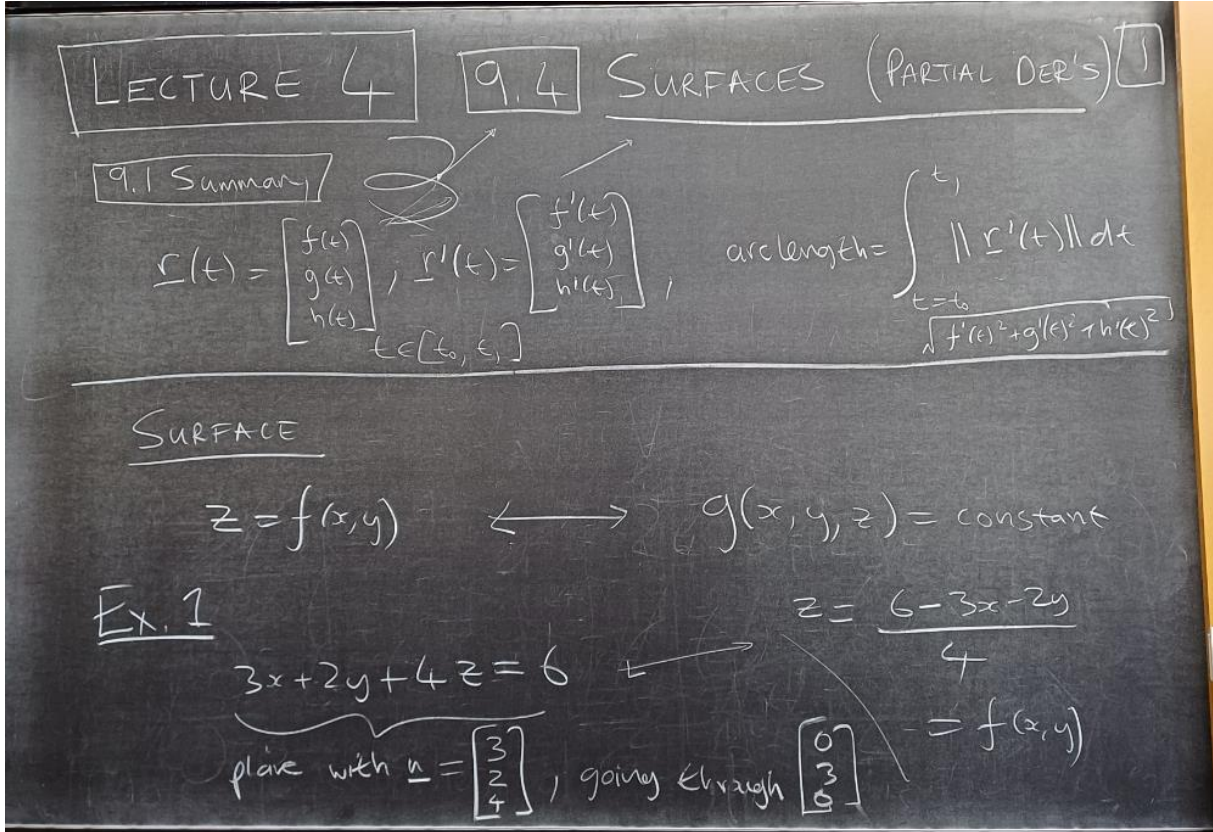 LECTURE 4 9.4 SURFACES (PARTIAL DER'S) 1
9.1 Summary
r(t) = [f(t) g(t) h(t)], r'(t) = [f'(t) g'(t) h'(t)], arclength = ∫_{t=t₀}^{t₁} || r'(t) || dt
t ∈ [t₀, t₁] √(f'(t)² + g'(t)² + h'(t)²)
SURFACE
z = f(x,y) ⟷ g(x, y, z) = constant
Ex. 1
z = (6-3x-2y)/4
3x + 2y + 4z = 6 ⟷
= f(x,y)
plane with n = [3 2 4], going through [0 3 0]